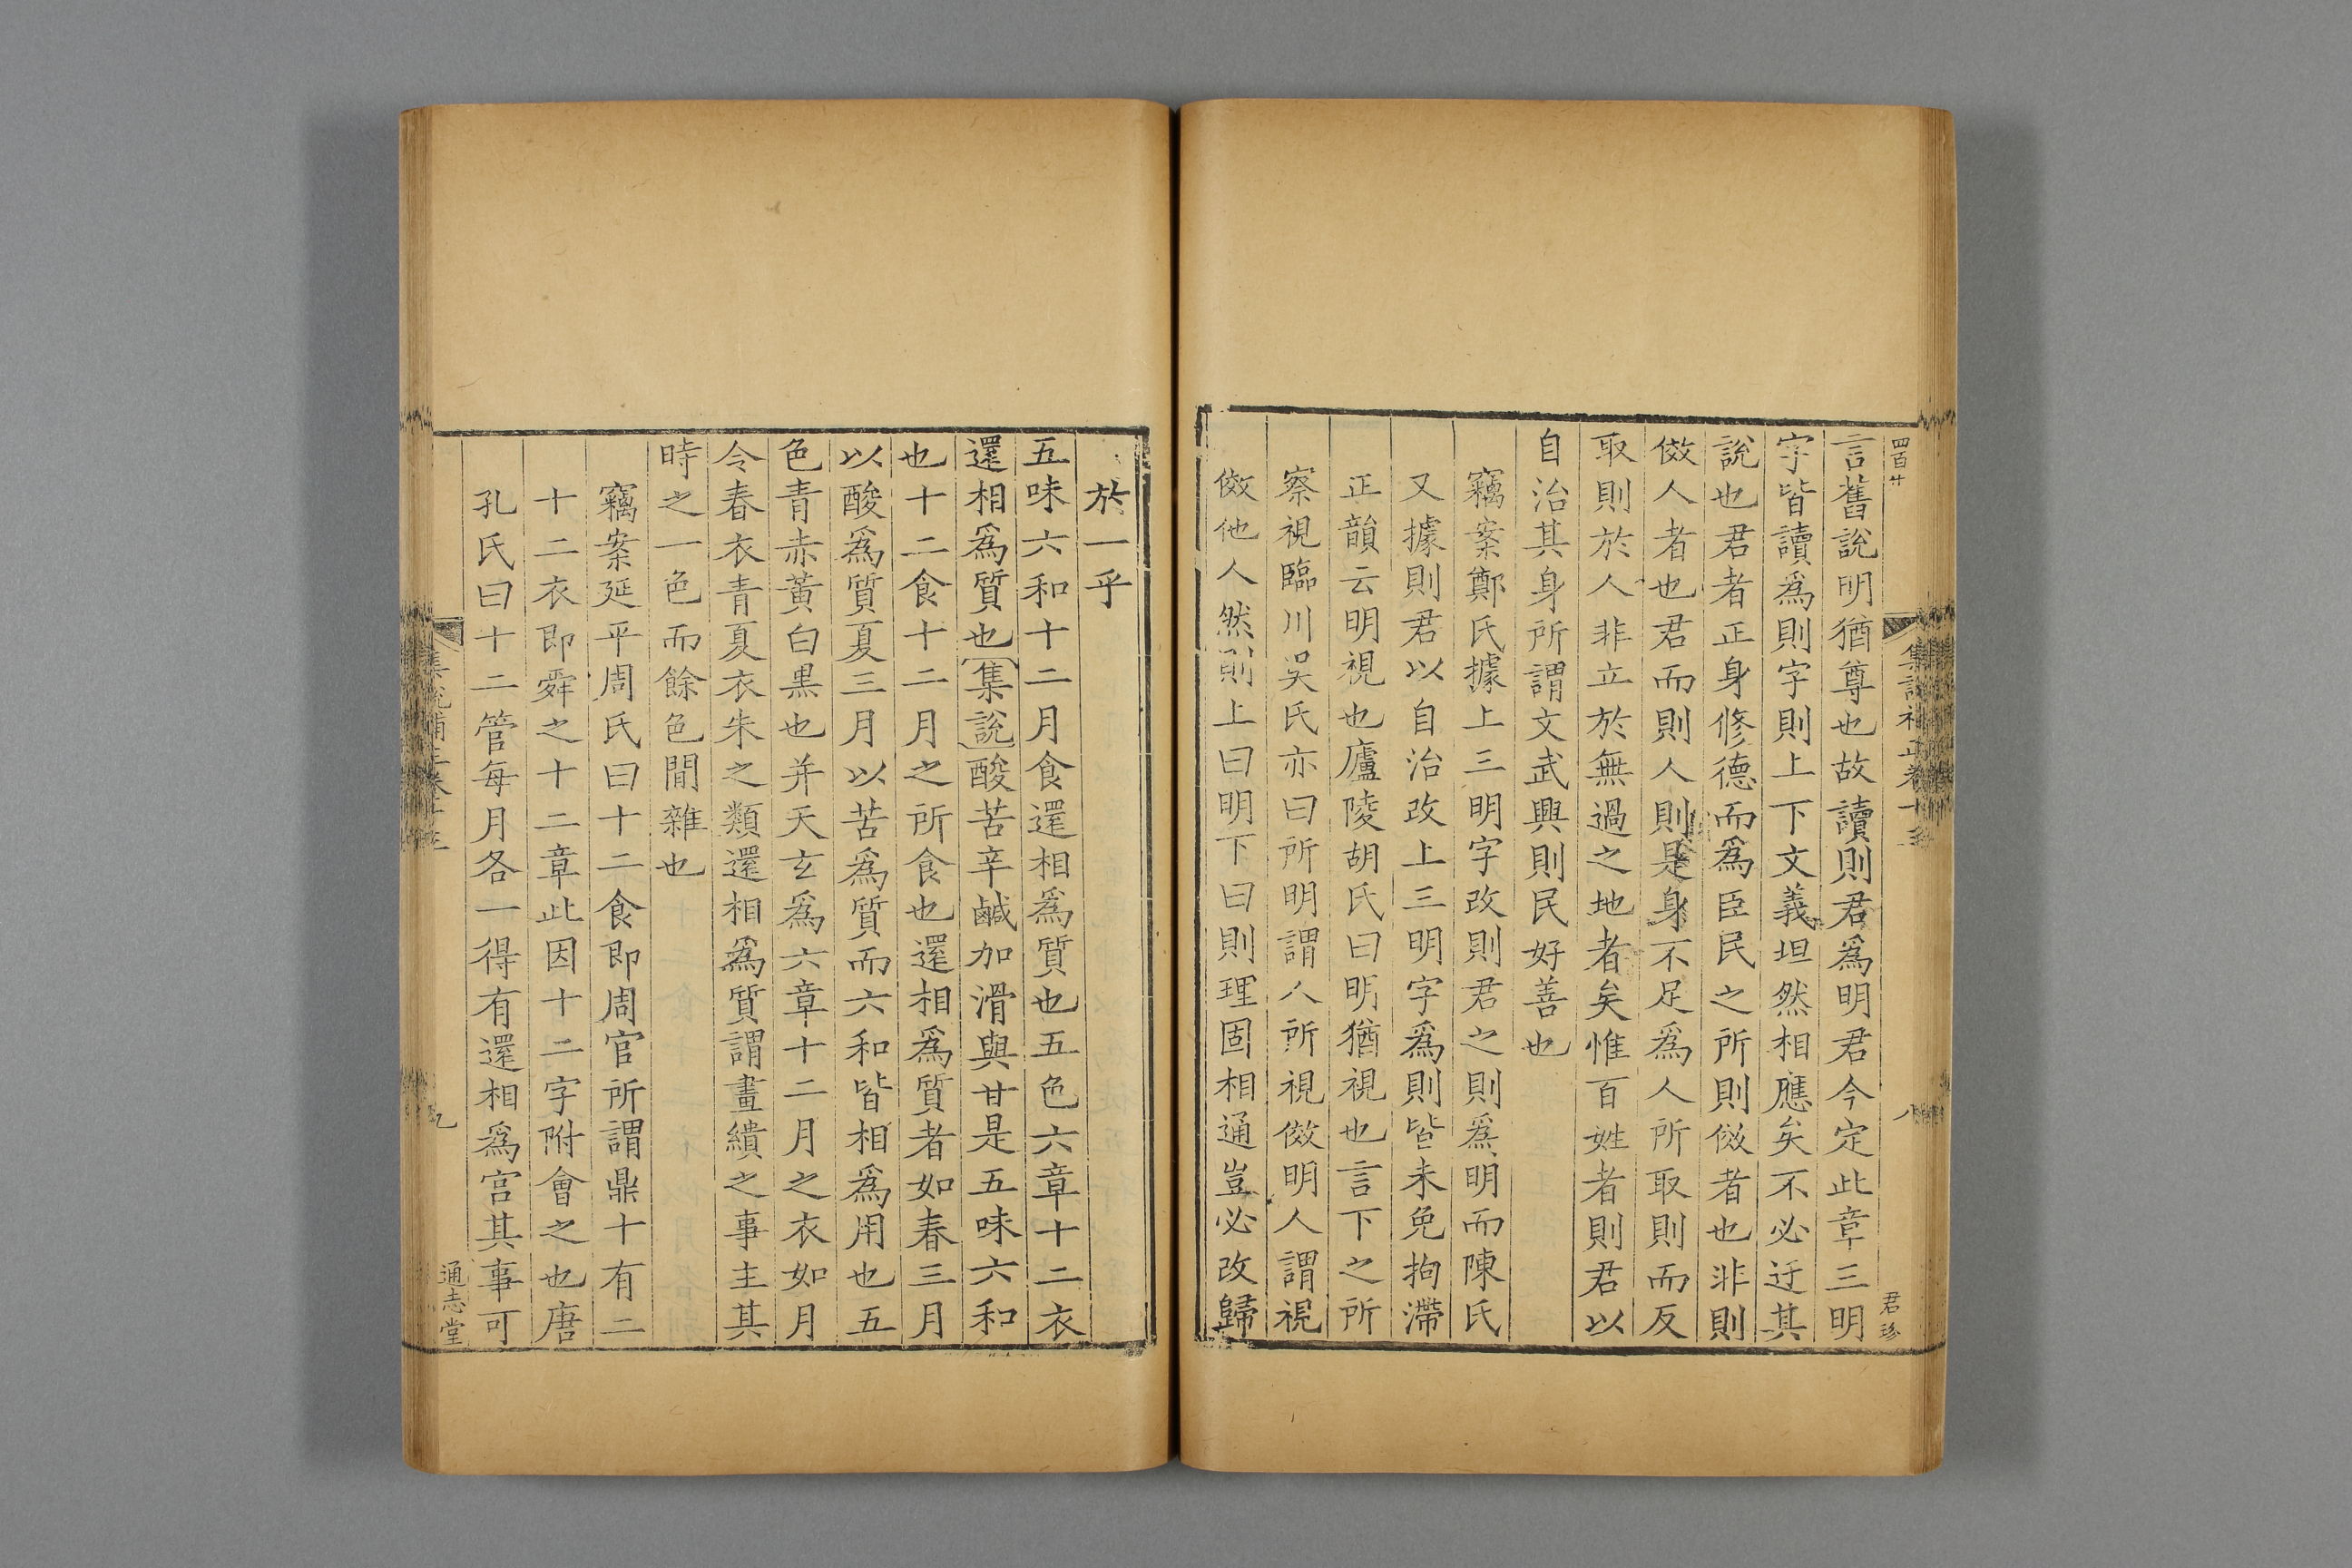 四百廿
集說補正卷十
八
君珍
言舊說明猶尊也故讀則君爲明君今定此章三明
字皆讀爲則字則上下文義坦然相應矣不必迂其
說也君者正身修德而爲臣民之所則傚者也非則
傚人者也君而則人則是身不足爲人所取則而反
取則於人非立於無過之地者矣惟百姓者則君以
自治其身所謂文武興則民好善也
竊案鄭氏據上三明字改則君之則爲明而陳氏
又據則君以自治改上三明字爲則皆未免拘滯
正韻云明視也廬陵胡氏曰明猶視也言下之所
察視臨川吳氏亦曰所明謂人所視傚明人謂視
傚他人然則上曰明下曰則理固相通豈必改歸
於一乎
五味六和十二月食還相爲質也五色六章十二衣
還相爲質也集說酸苦辛鹹加滑與甘是五味六和
也十二食十二月之所食也還相爲質者如春三月
以酸爲質夏三月以苦爲質而六和皆相爲用也五
色青赤黃白黑也并天玄爲六章十二月之衣如月
令春衣青夏衣朱之類還相爲質謂畫繢之事主其
時之一色而餘色閒雜也
竊案延平周氏曰十二食即周官所謂鼎十有二
十二衣即舜之十二章此因十二字附會之也唐
孔氏曰十二管每月各一得有還相爲宮其事可
集說補正卷十
九
通志堂